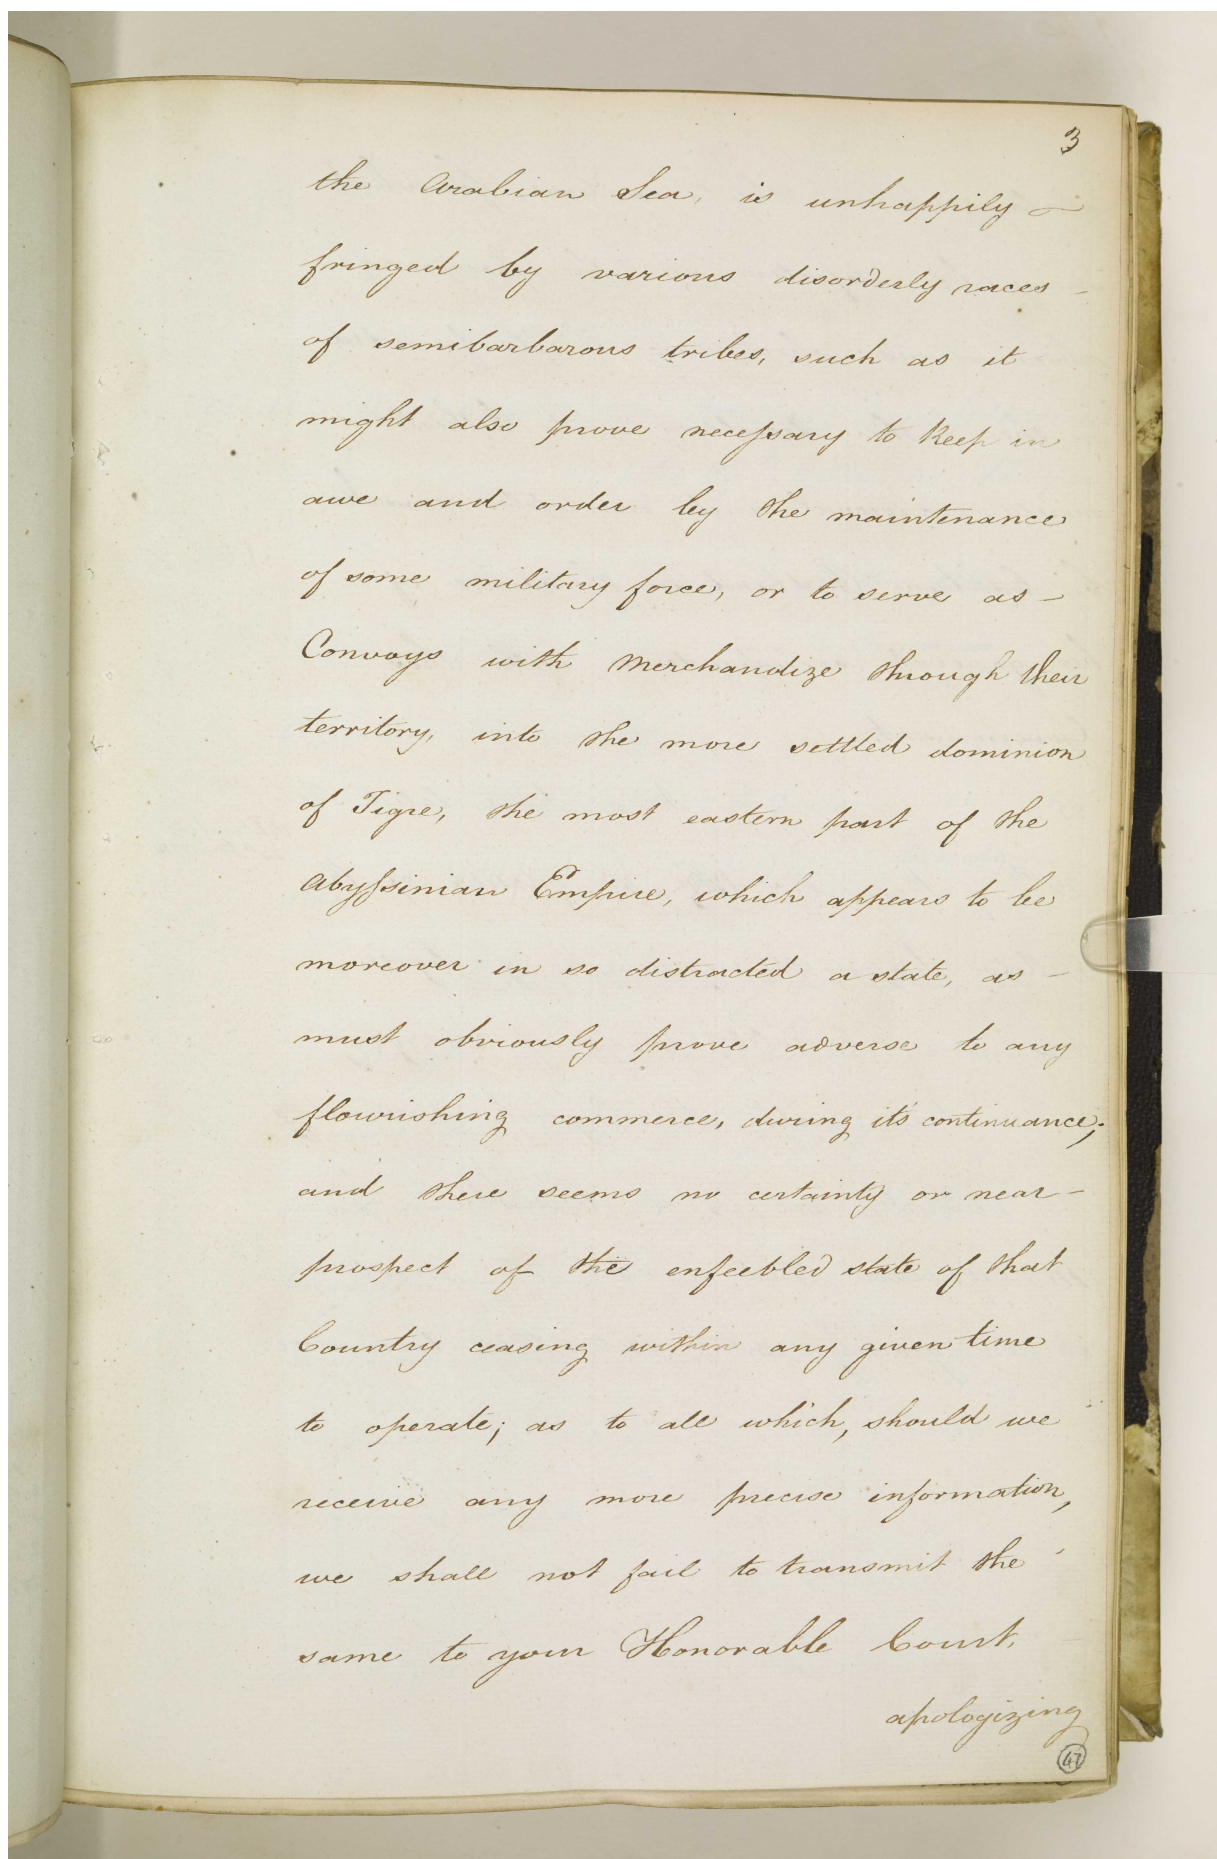 3
the Arabian Sea, is unhappily —
fringed by various disorderly races —
of semibarbarous tribes, such as it
might also prove necessary to keep in
awe and order by the maintenance
of some military force, or to serve as —
Convoys with Merchandize through their
territory, into the more settled dominion
of Tigre, the most eastern part of the
Abyssinian Empire, which appears to be
moreover in so distracted a state, as —
must obviously prove adverse to any
flourishing commerce, during it's continuance;
and there seems no certainty or near —
prospect of the enfeebled state of that
Country ceasing within any given time
to operate; as to all which, should we
receive any more precise information,
we shall not fail to transmit the
same to your Honorable Court.
apologizing
47